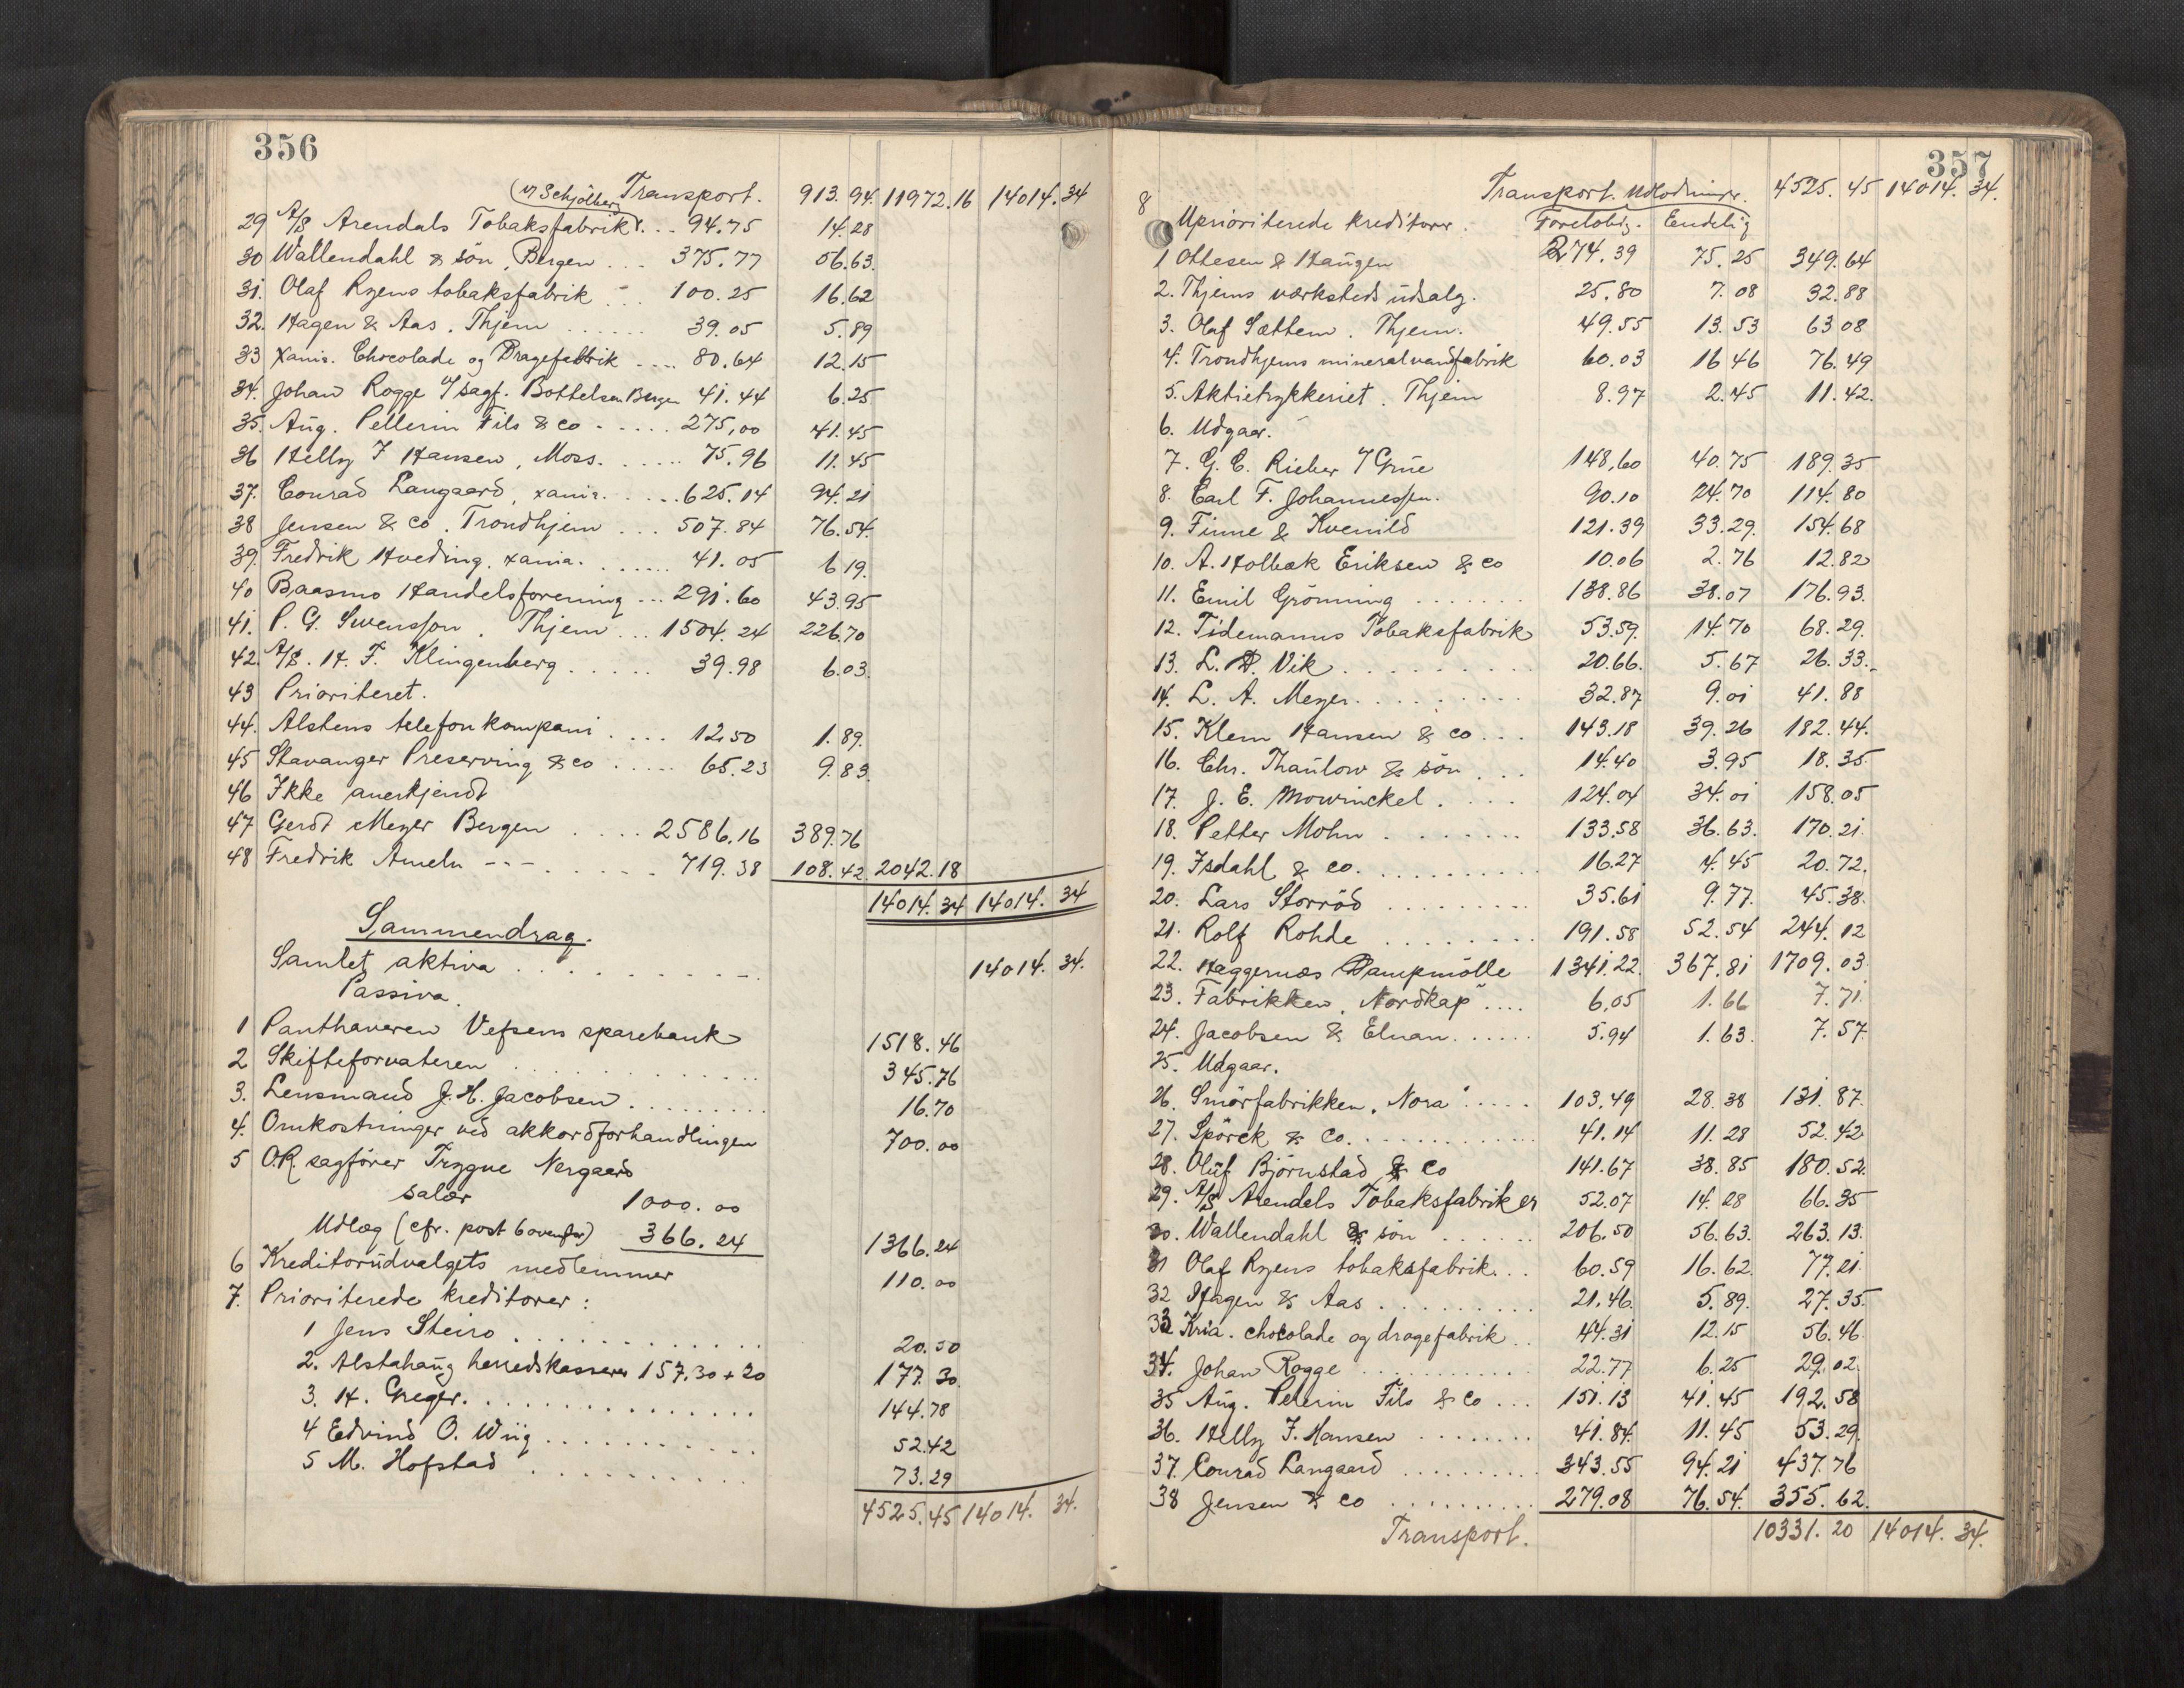 356
Transport. 913.94. 11972.16 14014.34
(v/ Schjölberg)
29 A/S Arendals Tobaksfabrikk. . . 94.75 14.28
30 Wallendahl & sön, Bergen . . . 375.77 56.63.
31. Olaf Ryens tobaksfabrik . . . 100.25 16.62
32. Hagen & Aas. Thjem . . . . . . 39.05 5.89
33 Xania. Chocolade og Dragefabrik . . . . 80.64 12.15
34. Johan Rogge v/sagf. Bottelsen Bergen 41.44 6.25
35. Aug. Pellerin Fils & co . . . . . 275,00 41.45
36 Helly J Hansen, Moss. . . . . . 75.96 11.45
37. Conrad Langaard, Xania. . . . . 625.14 94.21
38 Jensen & co. Trondhjem . . . 507.84 76.54.
39. Fredrik Hveding. Xania. . . . . . . 41.05 6 19.
40 Baasmo Handelsforening . . . 291.60 43.95
41. P. G. Svensson. Thjem . . . 1504.24 226.70
42. A/S. H. F. Klingenberg . . . . . 39.98 6.03.
43 Prioriteret.
44. Alstens telefonkompani . . . . 12.50 1.89.
45 Stavanger Preserving & co . . . . . 65.23 9.83.
46 Ikke anerkjendt
47 Gerdt Meyer Bergen . . . . 2586.16 389.76
48 Fredrik Ameln - - - . . . . . 719.38 108.42. 2042.18
14014.34 14014.34
Sammendrag.
Samlet aktiva . . . . . . . . . . 14014.34.
Passiva.
1 Panthaveren Vefsens sparebank 1518.46
2 Skifteforvalteren . . . . . . . . . . 345.76
3. Lensmand J. H. Jacobsen . . . . . . . . 16.70
4. Omkostninger ved akkordforhandlingen 700.00
5 O.R. sagförer Trygve Nergaard
salær 1000.00
Udlæg (cfr. post 6 ovenfor) 366.24 1366.24
6 Kreditorudvalgets medlemmer 110.00
7. Prioriterede kreditorer:
1 Jens Steiro . . . . . . . . . . . 20.50
2. Alstahaug herredskasserer 157.30 + 20 177.30.
3. H. Greger. . . . . . . . . . . . . 144.78
4 Edvind O. Wiig . . . . . . . . . . . 52.42
5 M. Hofstad . . . . . . . . . . 73.29
4525.45 14014.34.
357
Transport. Udlodninger. 4525.45 14014.34.
8 Uprioriterede kreditorer. Foreløbig. Endelig
1 Ottesen & Haugen 274.39 75.25 349.64
2. Thjems værksteds udsalg. 25.80 7.08 32.88
3. Olaf Sættem. Thjem. 49.55 13.53 63 08
4. Trondhjems mineralvandfabrik 60.03 16 46 76.49
5. Aktietrykkeriet. Thjem 8.97 2.45 11.42.
6. Udgaar.
7. G. C. Rieber v/ Grue 148,60 40.75 189.35
8. Carl F. Johannessen. 90.10 24.70 114.80
9. Finne & Kvenild 121.39 33.29. 154.68
10. A. Holbæk Eriksen & co 10.06 2.76 12.82
11. Emil Grönning . . . . . . . 138.86 38.07 176.93.
12. Tidemanns Tobaksfabrik 53.59. 14.70 68.29.
13. L. P. Vik . . . . . . . . . 20.66. 5.67 26.33.
14. L. A. Meyer . . . . . . . . . 32.87 9.01 41.88
15. Klem Hansen & co . . . 143.18 39.26 182.44.
16. Chr. Thaulow & sön . . . 14.40 3.95 18.35
17. J. E. Mowinckel . . . . 124.04 34.01 158.05
18. Petter Mohn . . . . . . . . 133.58 36.63. 170.21.
19. Isdahl & co. . . . . . . . . . . 16.27 4.45 20.72.
20. Lars Storröd . . . . . . . . . 35.61 9.77. 45.38.
21. Rolf Rohde . . . . . . . . 191.58 52.54 244.12
22. Haggernæs Dampmölle 1341.22. 367.81 1709.03
23. Fabrikken „Nordkap" . . . . 6,05 1.66 7.71.
24. Jacobsen & Elnan . . . . . . 5.94 1.63. 7.57.
25. Udgaar.
26. Smörfabrikken „Nora" . . . . . 103.49 28.38 131.87.
27. Spörck & Co. . . . . . . . . . . . 41.14 11.28 52.42
28. Oluf Björnstad & Co 141.67 38.85 180.52.
29. A/S Arendels Tobaksfabriker 52.07 14.28 66.35
30. Wallendahl & sön . . . . . . 206.50 56.63. 263.13.
31 Olaf Ryens tobaksfabrik . . . 60.59 16.62. 77.21.
32 Hagen & Aas . . . . . . . . . 21.46. 5.89. 27.35.
33 Kria. chokolade og dragefabrik . . 44.31 12.15 56.46.
34. Johan Rogge . . . . . . . . . . . 22.77 6.25 29.02.
35 Aug. Pelerin Fils & Co . . . 151.13 41.45 192.58
36. Helly J. Hansen . . . . . . . . 41.84. 11.45 53.29.
37. Conrad Langaard . . . . . . . . . . 343.55 94.21 437.76
38 Jensen & co . . . . . . . . . . . 279.08 76.54. 355.62.
Transport. 10331.20 14014.34.